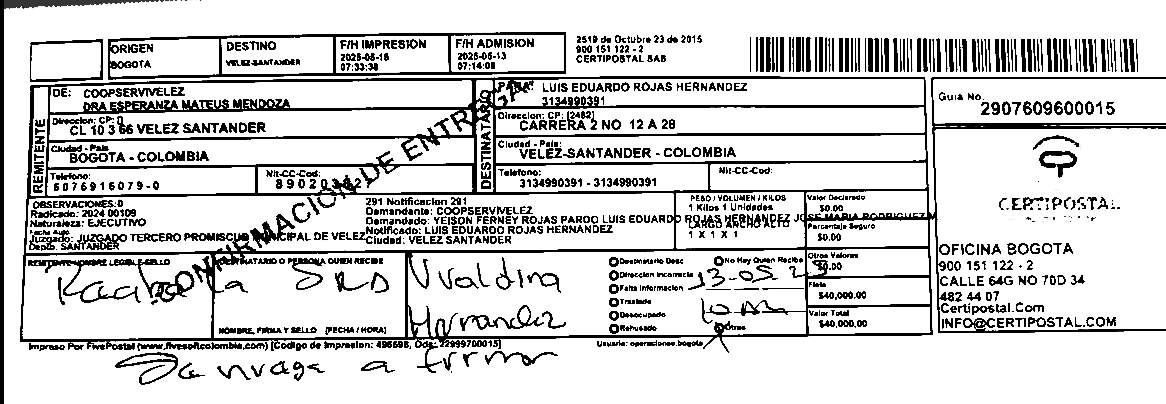 ORIGEN
BOGOTA
DESTINO
VELEZ-SANTANDER
F/H IMPRESION
07:33:38
F/H ADMISION
2025-05-13
07:14:08
2519 de Octubre 23 de 2015
900 151 122 - 2
CERTIPOSTAL SAS
REMITENTE
DE: COOPSERVIVELEZ
DRA ESPERANZA MATEUS MENDOZA
Direccion: CP: 0
CL 10 3 66 VELEZ SANTANDER
Ciudad - Pais
BOGOTA - COLOMBIA
Telefono:
6076916079-0
Nit-CC-Cod:
DESTINATARIO
PARA: LUIS EDUARDO ROJAS HERNANDEZ
3134990391
Direccion: CP: [2482]
CARRERA 2 NO 12 A 28
Ciudad - Pais:
VELEZ-SANTANDER - COLOMBIA
Telefono:
3134990391 - 3134990391
Nit-CC-Cod:
CONFIRMACION DE ENTREGA
Guia No.
2907609600015
CERTIPOSTAL
OFICINA BOGOTA
900 151 122 - 2
CALLE 64G NO 70D 34
482 44 07
Certipostal.Com
INFO@CERTIPOSTAL.COM
OBSERVACIONES:0
Radicado: 2024 00109
Naturaleza: EJECUTIVO
Fecha Auto:
Juzgado: JUZGADO TERCERO PROMISCUO MUNICIPAL DE VELEZ
Depto. SANTANDER
291 Notificacion 291
Demandante: COOPSERVIVELEZ
Demandado: YEISON FERNEY ROJAS PARDO LUIS EDUARDO ROJAS HERNANDEZ JOSE MARIA RODRIGUEZ M
Notificado: LUIS EDUARDO ROJAS HERNANDEZ
Ciudad: VELEZ SANTANDER
PESO / VOLUMEN / KILOS
1 Kilos 1 Unidades
LARGO ANCHO ALTO
1 X 1 X 1
Valor Declarado
$0.00
Porcentaje Seguro
$0.00
Otros Valores
$0.00
Flete
$40,000.00
Valor Total
$40,000.00
REMITENTE NOMBRE LEGIBLE-SELLO
DESTINATARIO O PERSONA QUIEN RECIBE
NOMBRE, FIRMA Y SELLO (FECHA / HORA)
la SRA
Hernandez
Destinatario Desc
No Hay Quien Recibe
Direccion Incorrecta
Falta Informacion
Traslado
Desocupado
Rehusado
Otros
Impreso Por FivePostal (www.fivesoftcolombia.com) [Codigo de Impresion: 496598, Ods: 22999700015]
Usuario: operaciones.bogota
a firmar